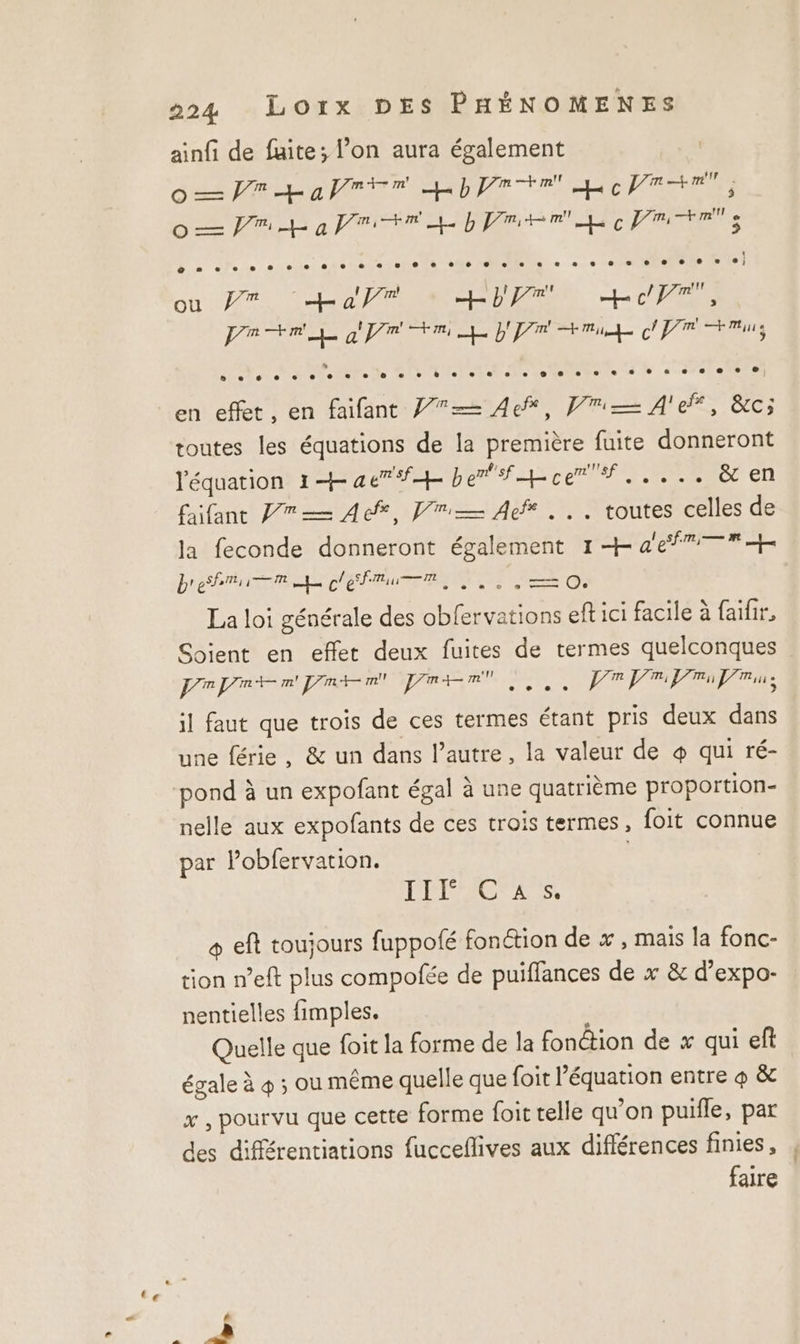 224 LOIX DES PHÉNOMENES
ainſi de ſuite; l'on aura également
o = Vᵐ + a Vᵐ⁺ᵐ' + b Vᵐ⁺ᵐ'' + c Vᵐ⁺ᵐ''' ;
o = Vᵐ, + a Vᵐ,⁺ᵐ' + b Vᵐ,⁺ᵐ'' + c Vᵐ,⁺ᵐ''' ;
. . . . . . . . . . . . . . . . . . . . . . . . . . . . . . ;
ou Vᵐ + a' Vᵐ' + b' Vᵐ'' + c' Vᵐ''',
Vⁿ⁺ᵐ' + a' Vᵐ'⁺ᵐ, + b' Vᵐ'⁺ᵐ,, + c' Vᵐ'⁺ᵐ,,, ;
. . . . . . . . . . . . . . . . . . . . . . . . . . . . . . ,
en effet, en faiſant Vᵐ = A eᶠˣ, Vᵐ, = A' eᶠˣ, &c;
toutes les équations de la première ſuite donneront
l'équation 1 + a eᵐ'ˢᶠ + b eᵐ''ˢᶠ + c eᵐ'''ˢᶠ . . . . . & en
faiſant Vᵐ = A eᶠˣ, Vᵐ, = A eᶠˣ . . . toutes celles de
la ſeconde donneront également 1 + a' eˢᶠ·ᵐ,⁻ᵐ +
b' eˢᶠ·ᵐ,,⁻ᵐ + c' eˢᶠ·ᵐ,,,⁻ᵐ . . . . . = 0.
La loi générale des obſervations eſt ici facile à ſaiſir,
Soient en effet deux ſuites de termes quelconques
Vᵐ Vᵐ⁺ᵐ' Vᵐ⁺ᵐ'' Vᵐ⁺ᵐ''' . . . . Vᵐ Vᵐ, Vᵐ,, Vᵐ,,, ;
il faut que trois de ces termes étant pris deux dans
une ſérie, & un dans l'autre, la valeur de φ qui ré-
pond à un expoſant égal à une quatrième proportion-
nelle aux expoſants de ces trois termes, ſoit connue
par l'obſervation.
IIIᵉ CAS.
φ eſt toujours ſuppoſé fonction de x, mais la fonc-
tion n'eſt plus compoſée de puiſſances de x & d'expo-
nentielles ſimples.
Quelle que ſoit la forme de la fonction de x qui eſt
égale à φ ; ou même quelle que ſoit l'équation entre φ &
x, pourvu que cette forme ſoit telle qu'on puiſſe, par
des différentiations ſucceſſives aux différences finies,
faire